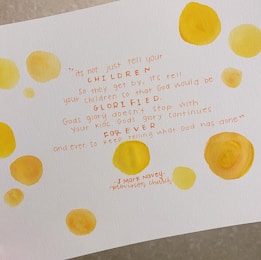 "its not just tell your
CHILDREN
so they get by, it's tell
your children so that God would be
GLORIFIED.
Gods glory doesn't stop with
your kids, Gods glory continues
FOREVER
and ever so keep telling what God has done"